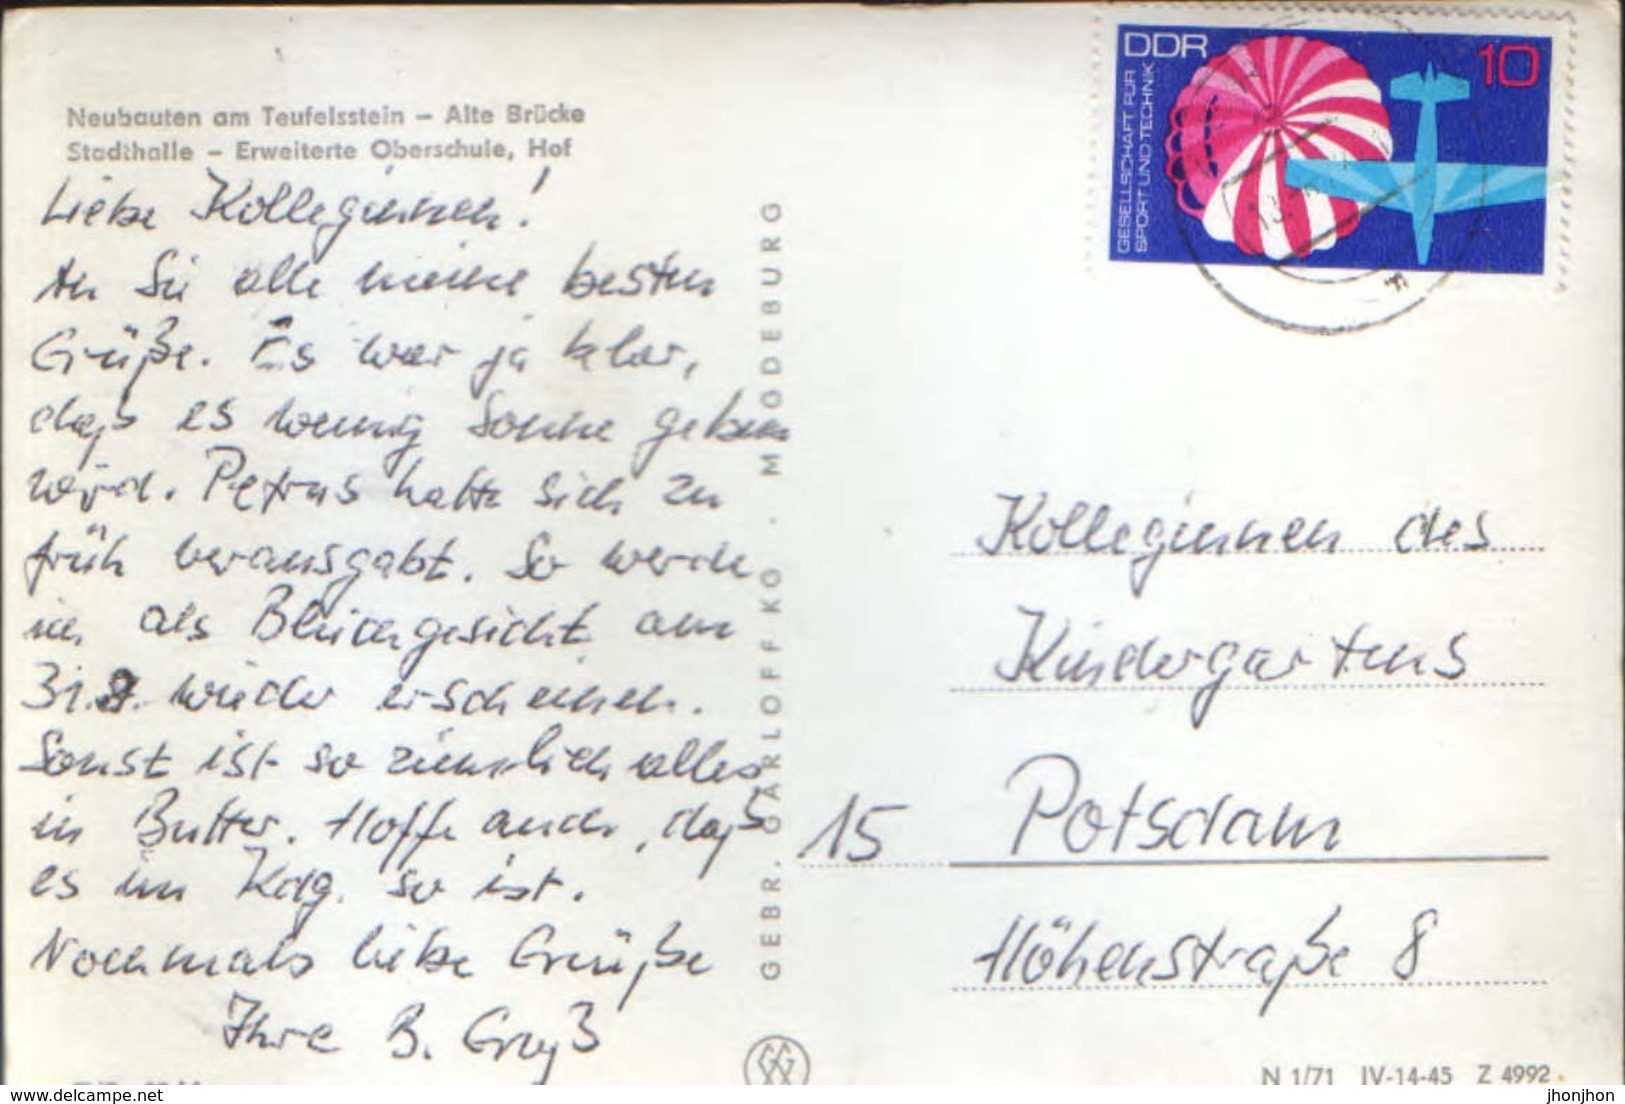 Neubauten am Teufelsstein – Alte Brücke
Stadthalle – Erweiterte Oberschule, Hof
Liebe Kolleginnen!
An Sie alle meine besten
Grüße. Es war ja klar,
daß es wenig Sonne geben
wird. Petrus hatte sich zu
früh verausgabt. So werde
ich als Bleichgesicht am
31.8. wieder erscheinen.
Sonst ist so ziemlich alles
in Butter. Hoffe auch, daß
es im Kdg. so ist.
Nochmals liebe Grüße
Ihre B. Groß
GEBR. GARLOFF KG · MAGDEBURG
DDR
10
GESELLSCHAFT FÜR
SPORT UND TECHNIK
Kolleginnen des
Kindergartens
15 Potsdam
Höhenstraße 8
N 1/71 IV-14-45 Z 4992
jhonjhon